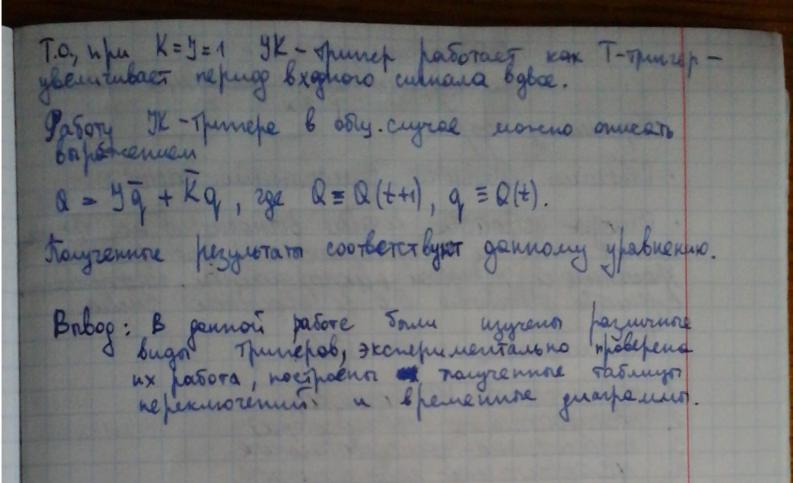 Т.о, при K=J=1 JK-тригер работает как Т-тригер -
увеличивает период входного сигнала вдвое.
Работу JK-тригера в общ. случае можно описать
выражением
Q = Jq̅ + K̅q, где Q ≡ Q(t+1), q ≡ Q(t).
Полученные результаты соответствуют данному уравнению.
Вывод: В данной работе были изучены различные
виды тригеров, экспериментально проверена
их работа, построены полученные таблицы
переключений и временные диаграммы.